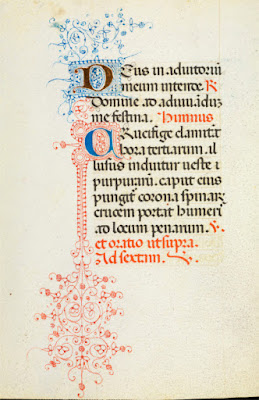 Deus in adiutoriū
meum intende. R
Domine ad adiuuādū
me festina. Himnus
Crucifige clamitāt
hora tertiarum. Il
lusus induitur ueste
purpurarū. caput eius
pungit̄ corona spinarȝ
crucem portat humeris
ad locum penarum. V.
et oratio ut supra.
Ad sextam.